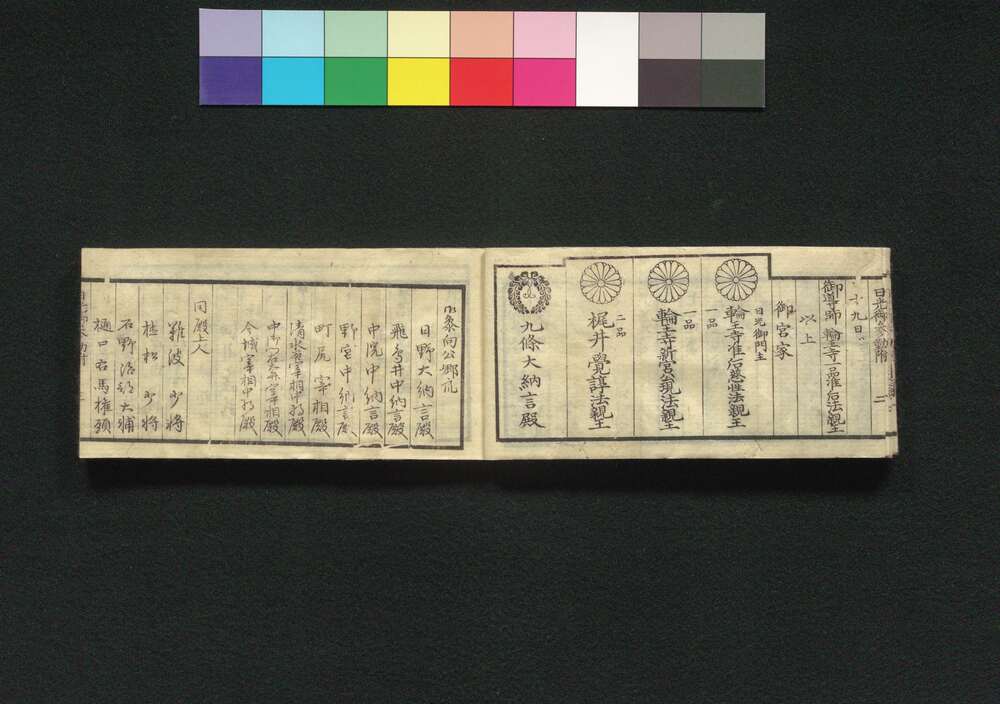 十九日
御導師 輪王寺一品准后法親王
以上
御宮家
日光御門主
輪王寺准后慈性法親王
一品
輪王寺新宮公現法親王
二品
梶井覺諄法親王
九條大納言殿
参向公卿
日野大納言殿
飛鳥井中納言殿
中院中納言殿
野宮中納言殿
町尻宰相殿
清水谷宰相中将殿
今城宰相中将殿
同殿上人
難波少将
植松少将
石野治部大輔
樋口右馬権頭